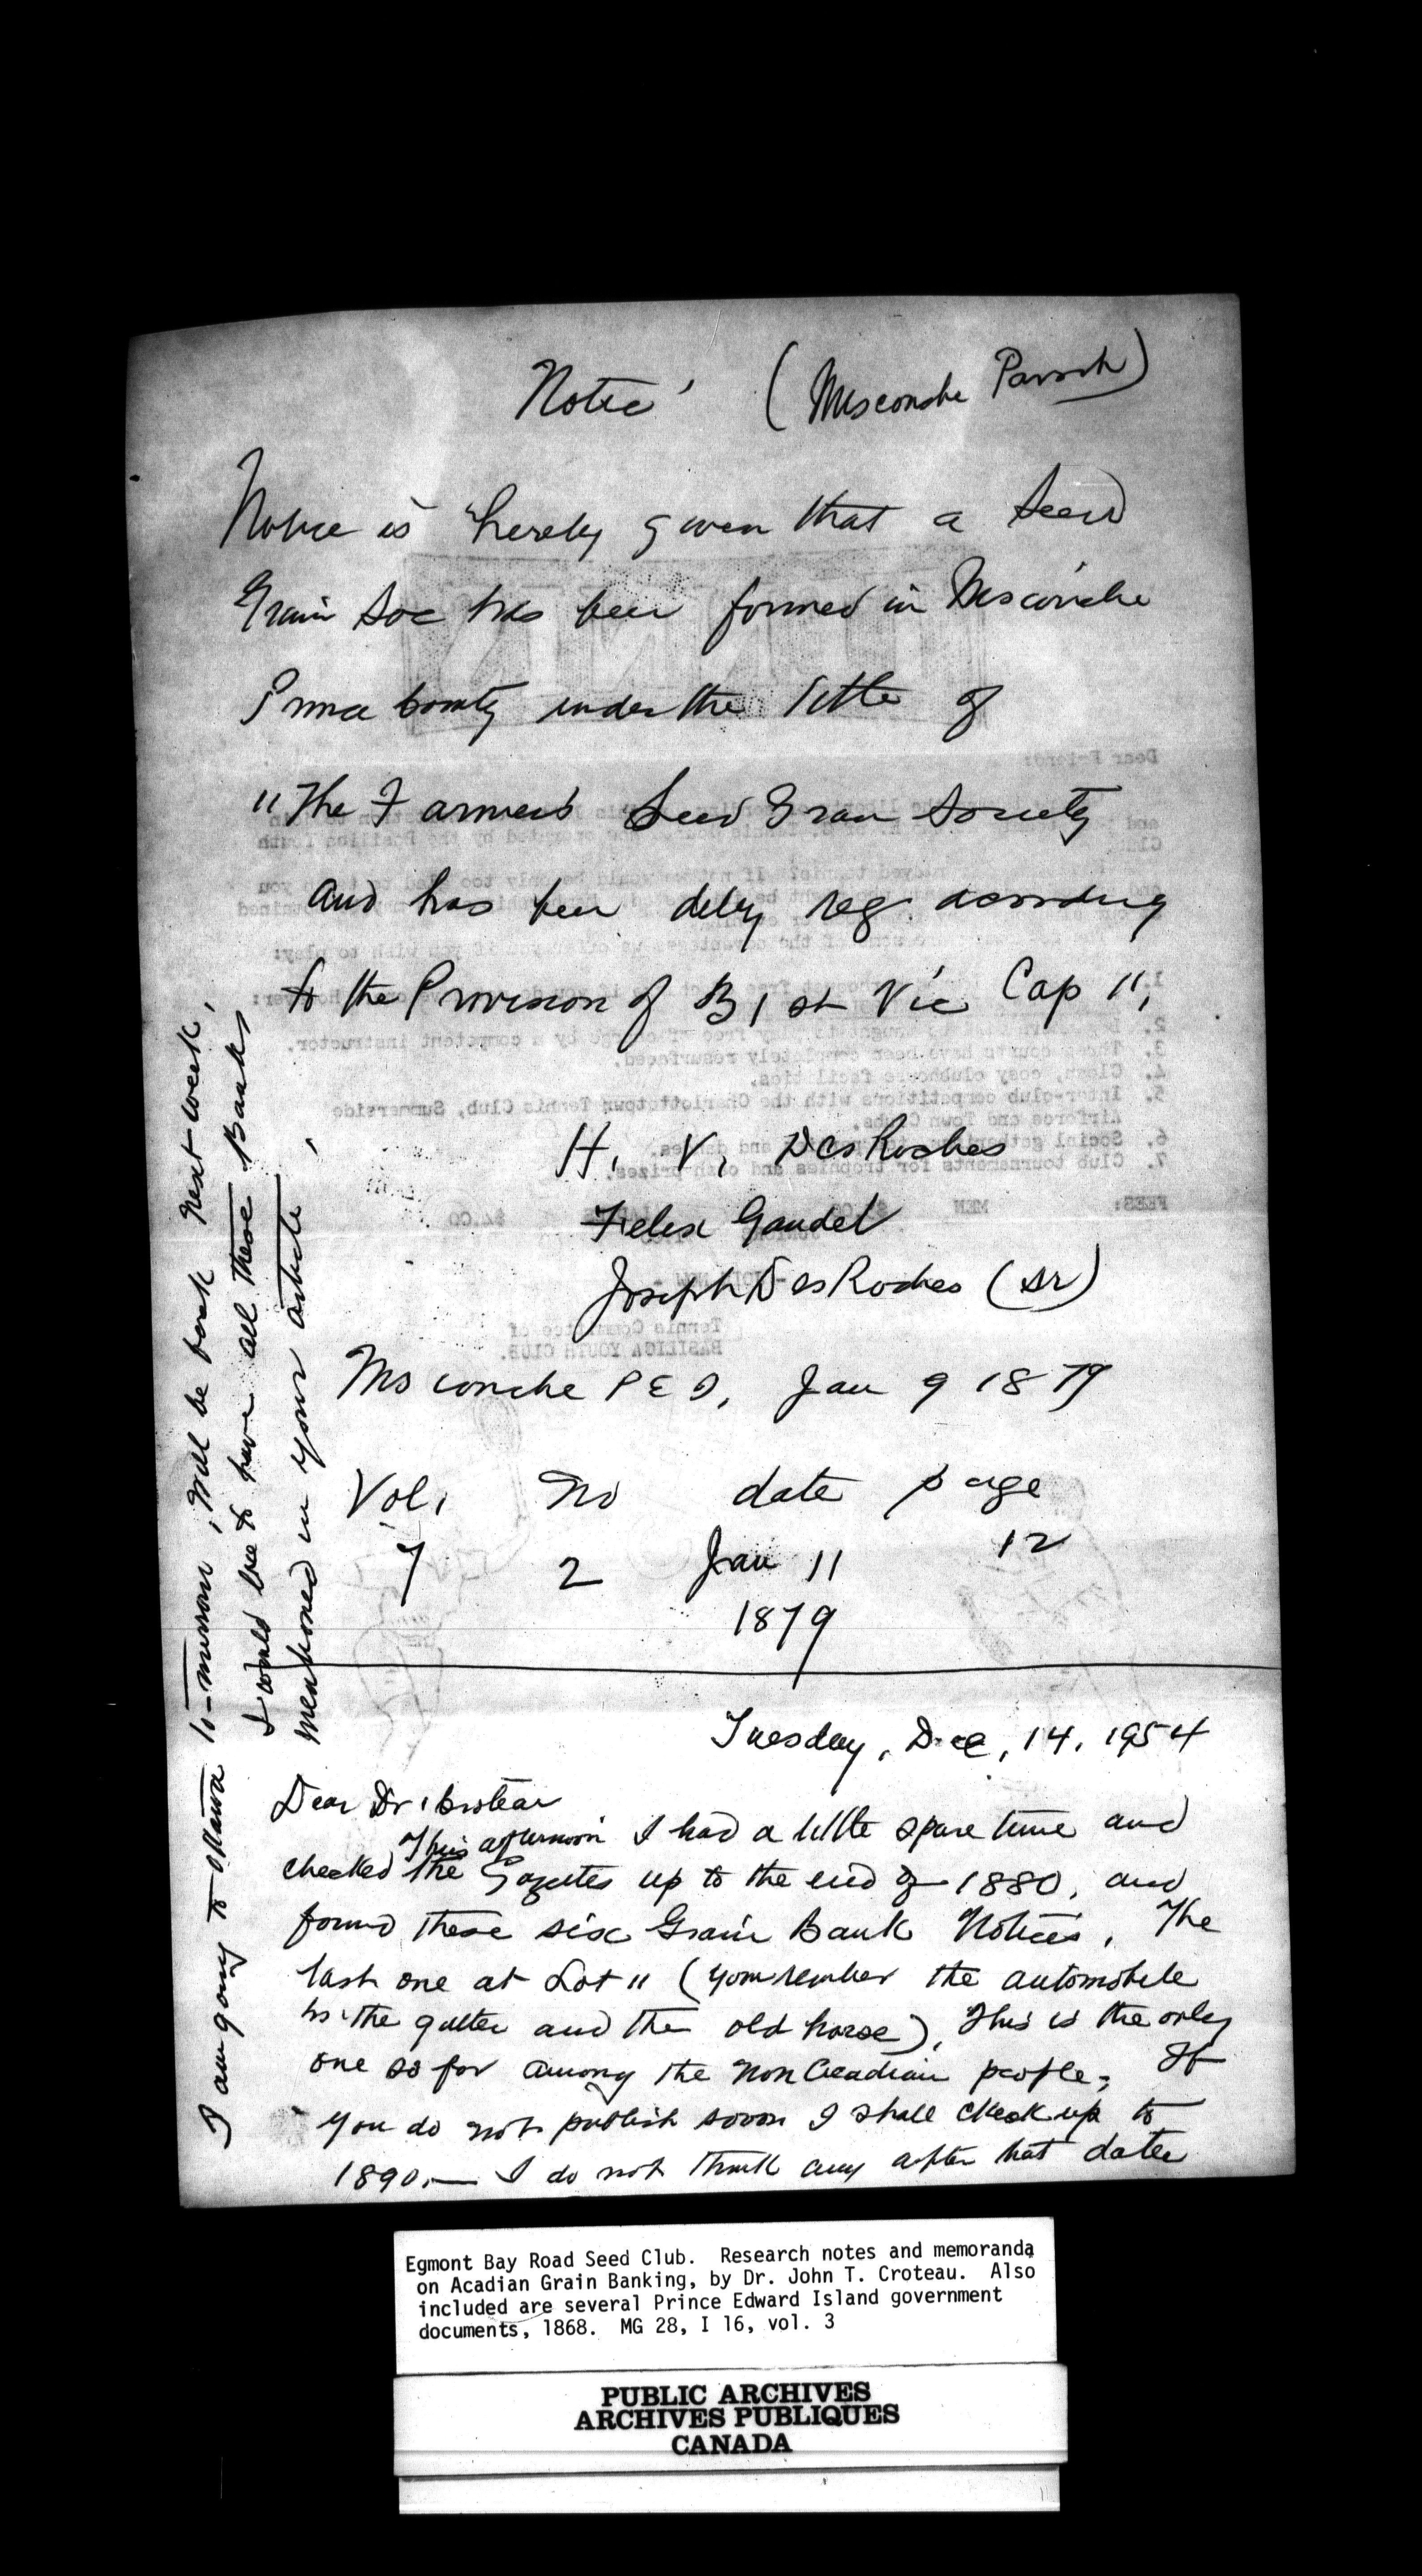 Notice (Miscouche Parish)
Notice is hereby given that a Seed
Grain Soc has been formed in Miscouche
Prince County under the title of
"The Farmers Seed Grain Society
and has been duly reg. according
to the Provision of 31 st Vic Cap 11,
H. V. DesRoches
Felix Gaudet
Joseph DesRoches (Sr)
Miscouche P E I, Jan 9 1879
Vol. No date page
7 2 Jan 11 12
1879
Tuesday, Dec, 14, 1954
Dear Dr. Croteau
This afternoon I had a little spare time and
checked the Gazettes up to the end of 1880, and
found these six Grain Bank Notices. The
last one at Lot 11 (you remember the automobile
in the gutter and the old horse). This is the only
one so far among the non Acadian people. If
you do not publish soon I shall check up to
1890. — I do not think any after that date
I am going to Ottawa to-morrow, will be back next week,
I would like to have all these Banks
mentioned in your article.
Dear Friend:
3. These courts have been completely resurfaced.
4. Clean, cosy clubhouse facilities.
5. Inter-club competitions with the Charlottetown Tennis Club, Summerside
Airforce and Town Clubs.
7. Club tournaments for trophies and cash prizes.
FEES: MEN
Tennis Committee of
BASILICA YOUTH CLUB.
Egmont Bay Road Seed Club. Research notes and memoranda
on Acadian Grain Banking, by Dr. John T. Croteau. Also
included are several Prince Edward Island government
documents, 1868. MG 28, I 16, vol. 3
PUBLIC ARCHIVES
ARCHIVES PUBLIQUES
CANADA